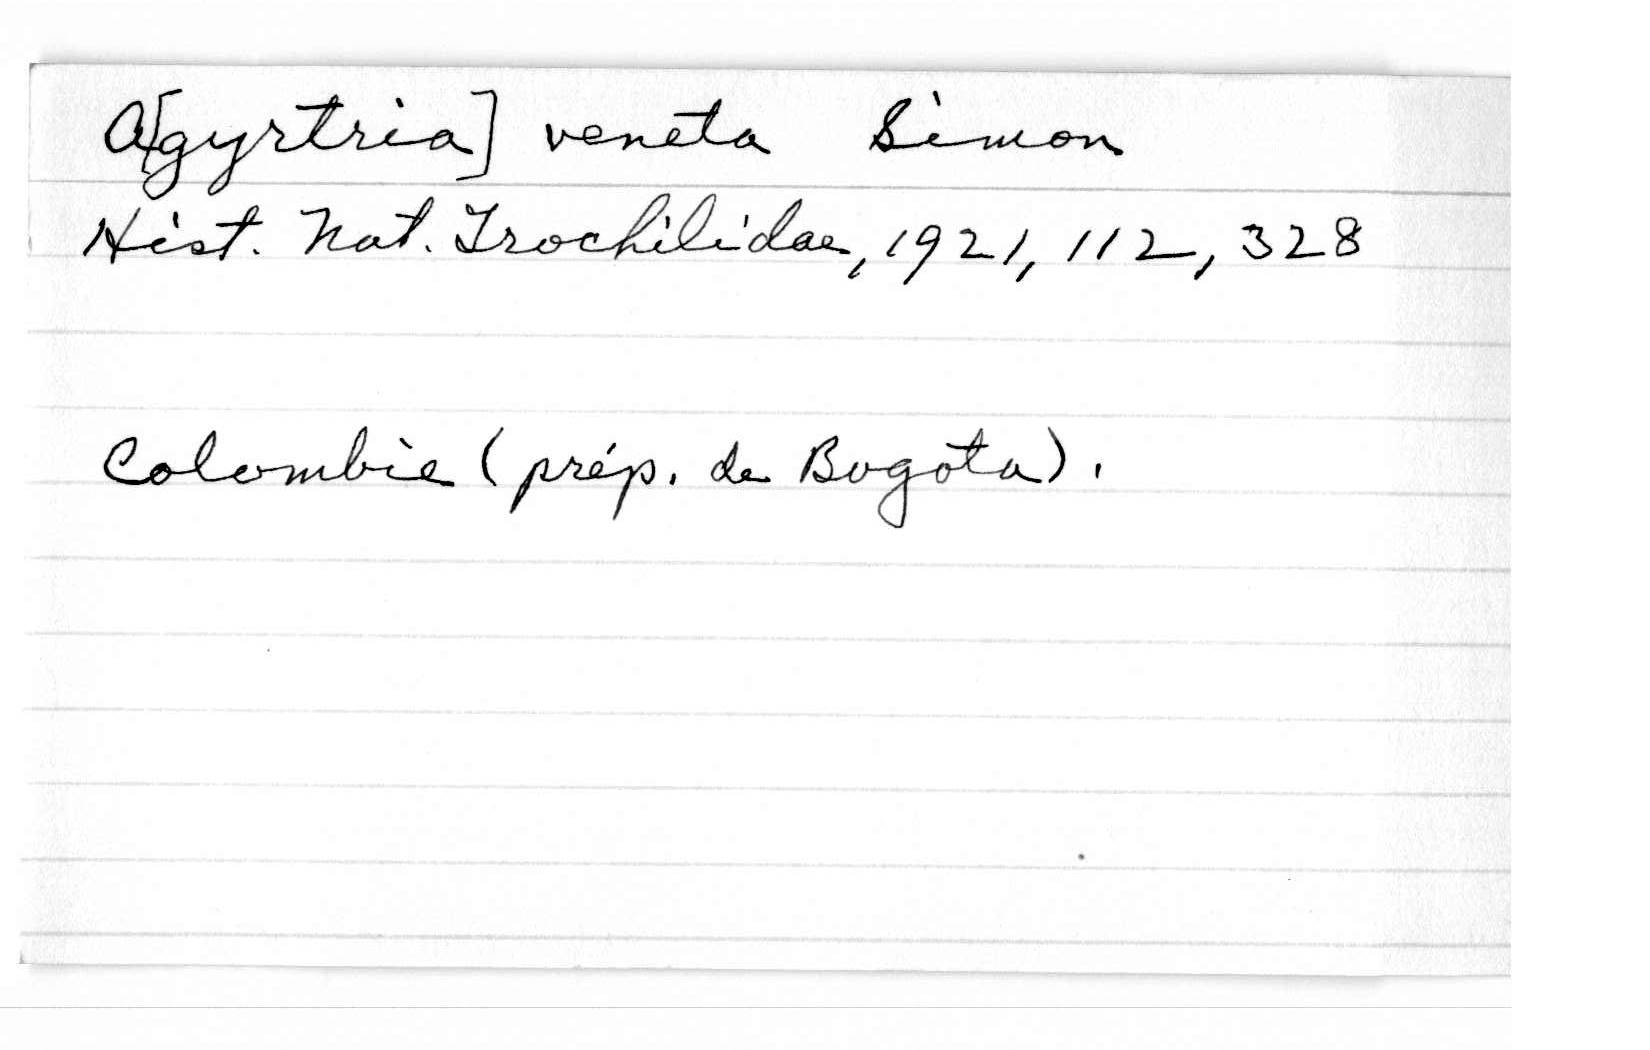 A[gyrtria] veneta Simon
Hist. Nat. Trochilidae, 1921, 112, 328
Colombie (prép. de Bogota).